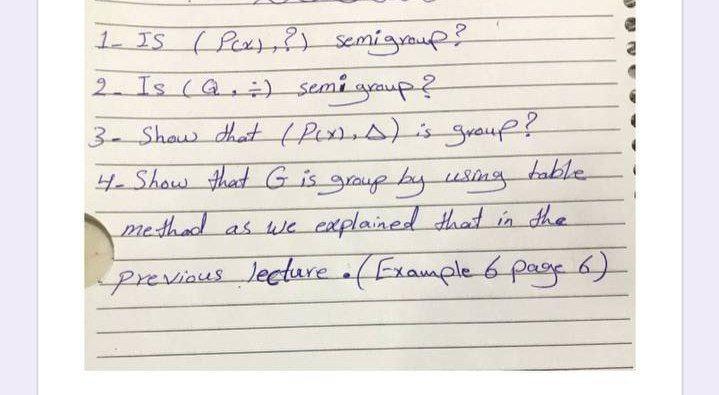 1- IS (P(x), ?) semigroup?
2- Is (Q, ÷) semi group?
3- Show that (P(x), Δ) is group?
4- Show that G is group by using table
method as we explained that in the
previous lecture. (Example 6 page 6)